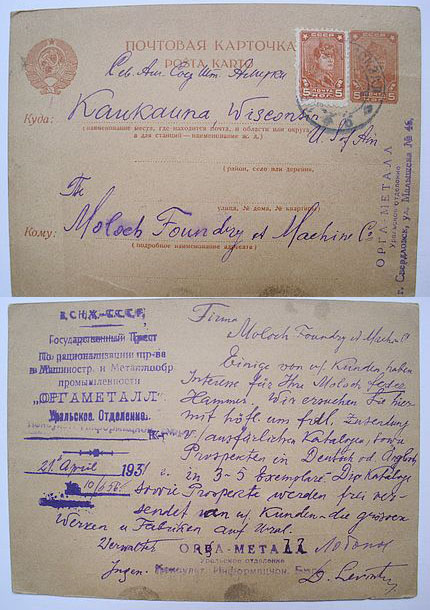 ПОЧТОВАЯ КАРТОЧКА
POŜTA KARTO
Сев. Ам. Соед. Шт. Америки
СССР
5 ПОЧТА 5
КОП.
Куда: Kaukauna, Wisconsin
(наименование места, где находится почта, и области или округа,
а для станций—наименование ж. д.)
U. S. of Am
(район, село или деревня,
The
улица, № дома, № квартиры)
Кому: Moloch Foundry et Machine C.
(подробное наименование адресата)
ОРГА-МЕТАЛЛ
Уральское отделение
г. Свердловск, ул. Малышева № 46.
В.С.Н.Х.-СССР,
Государственный Трест
По рационализации пр-ва
в Машиностр. и Металлообр.
промышленности
„ОРГАМЕТАЛЛ"
Уральское Отделение.
21 April 1931 г.
№ 10/658
Firma
Moloch Foundry et Machin C
Einige von u/ Kunden haben
Interese für Ihre Moloch feder
Hammer. Wir ersuchen Sie hier
mit höfl. um frdl. Zusendung
v/ ausfürlichen Kataloge, sowie
Prospekten in Deutsch od. Anglisch
in 3-5 Exemplare. Die Kataloge
sowie Prospekte werden frei ver-
sendet an u/ Kunden-die grössen
Werken u Fabriken auf Ural.
ОРГА-МЕТАЛЛ
Уральское отделение
Консульт. Информацион. Бюро
Ingen. D. Levontin